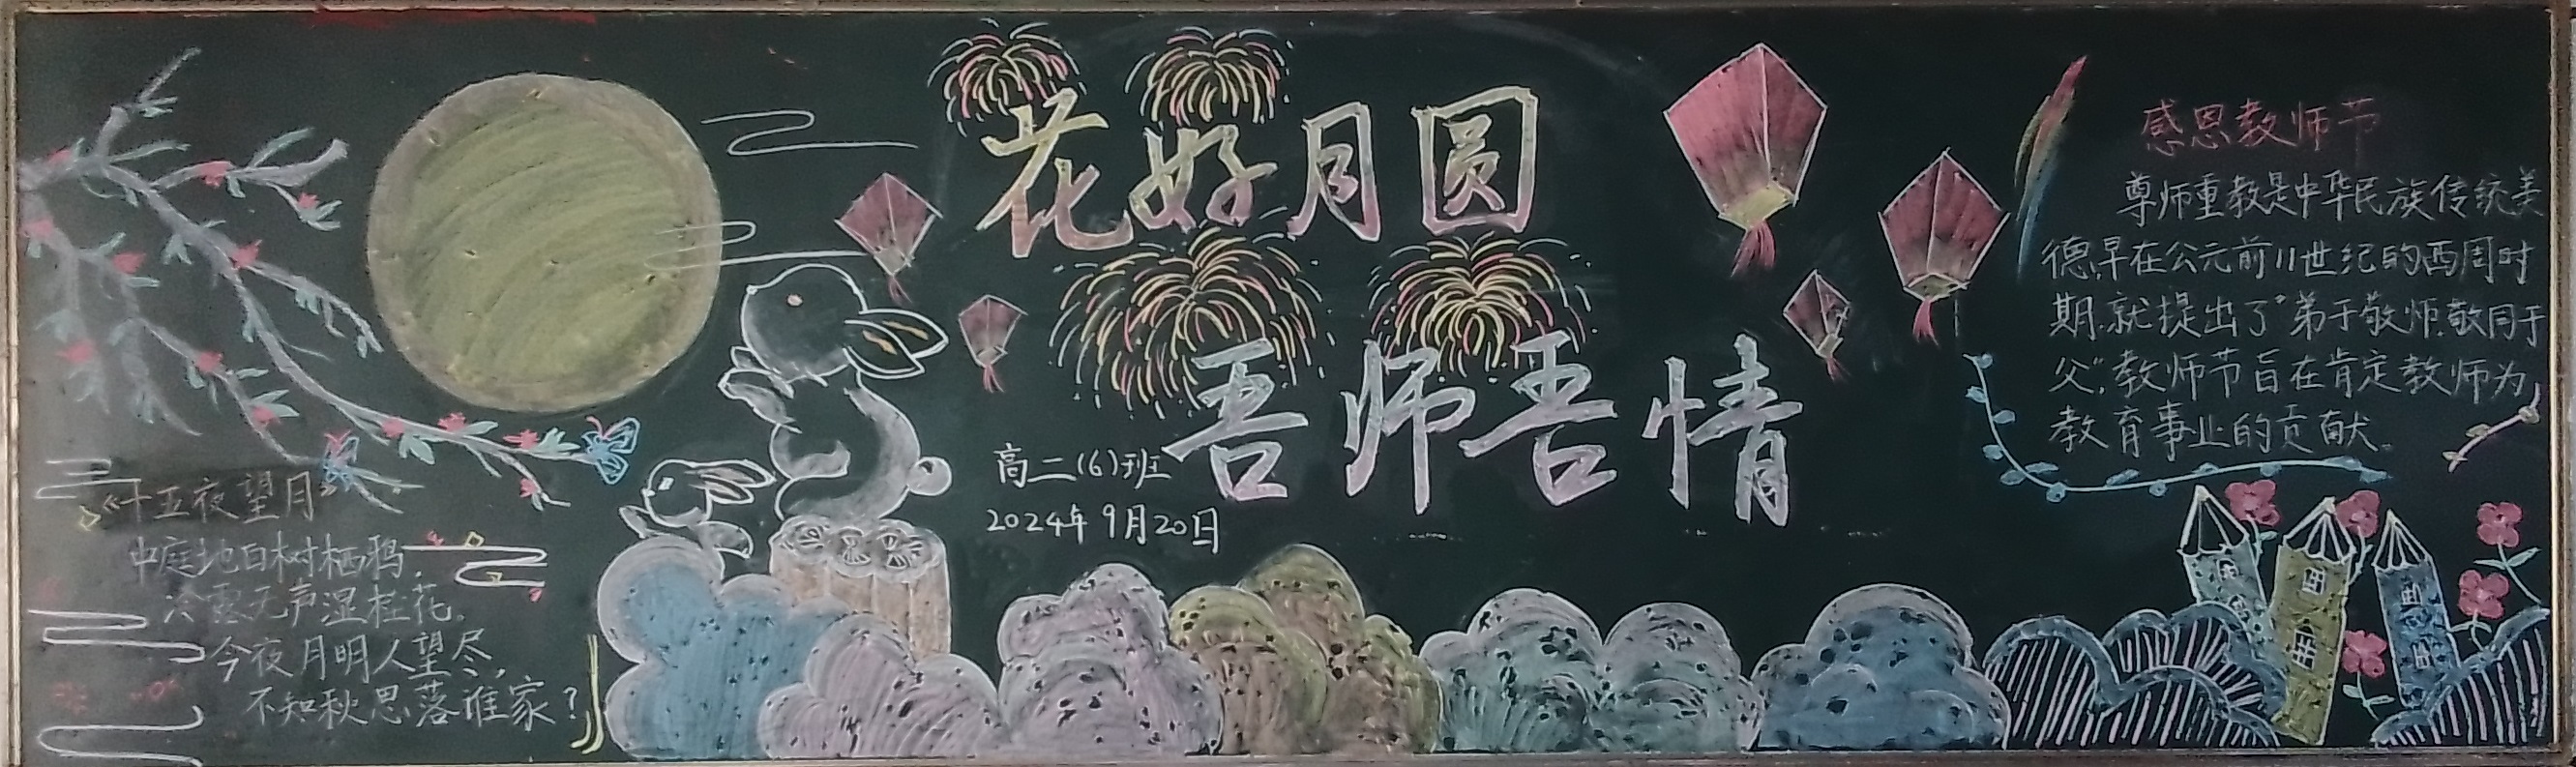 花好月圆
吾师吾情
高二(6)班
2024年9月20日
《十五夜望月》
中庭地白树栖鸦,
冷露无声湿桂花。
今夜月明人望尽,
不知秋思落谁家?
感恩教师节
尊师重教是中华民族传统美
德,早在公元前11世纪的西周时
期,就提出了“弟子敬师,敬同于
父”,教师节旨在肯定教师为
教育事业的贡献。